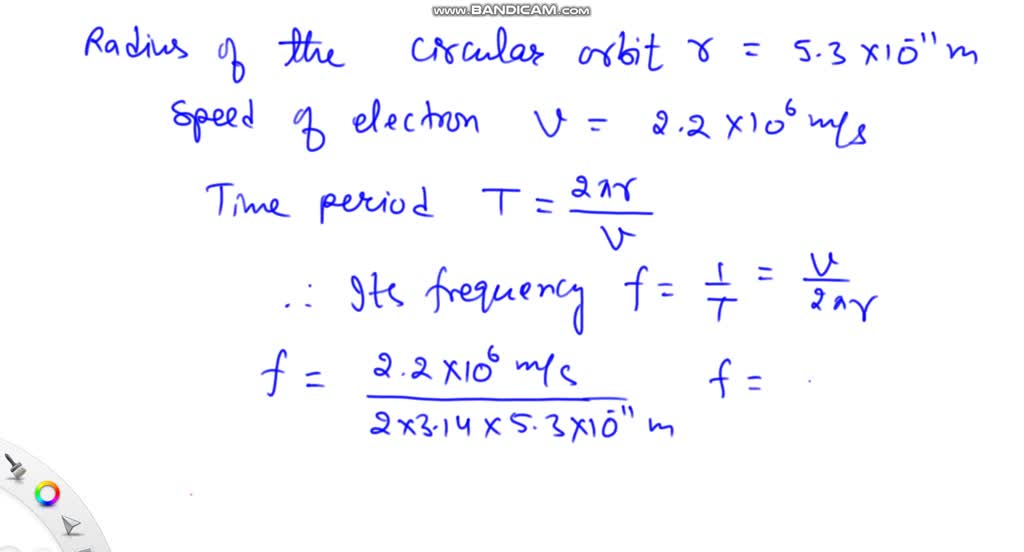 www.BANDICAM.com
Radius of the circular orbit r = 5.3 × 10⁻¹¹ m
Speed of electron v = 2.2 × 10⁶ m/s
Time period T = 2πr / v
∴ Its frequency f = 1/T = v / 2πr
f = 2.2 × 10⁶ m/s / 2 × 3.14 × 5.3 × 10⁻¹¹ m f =